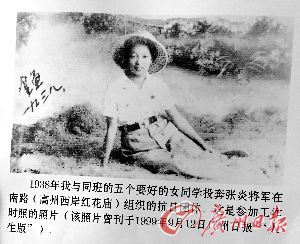 一九三八、
1938年我与同班的五个要好的女同学投奔张炎将军在
南路（高州西岸红花庙）组织的抗日团体
是参加工作
时照的照片（该照片曾刊于1999年9月12日
州日报
生版”）。
广州日报